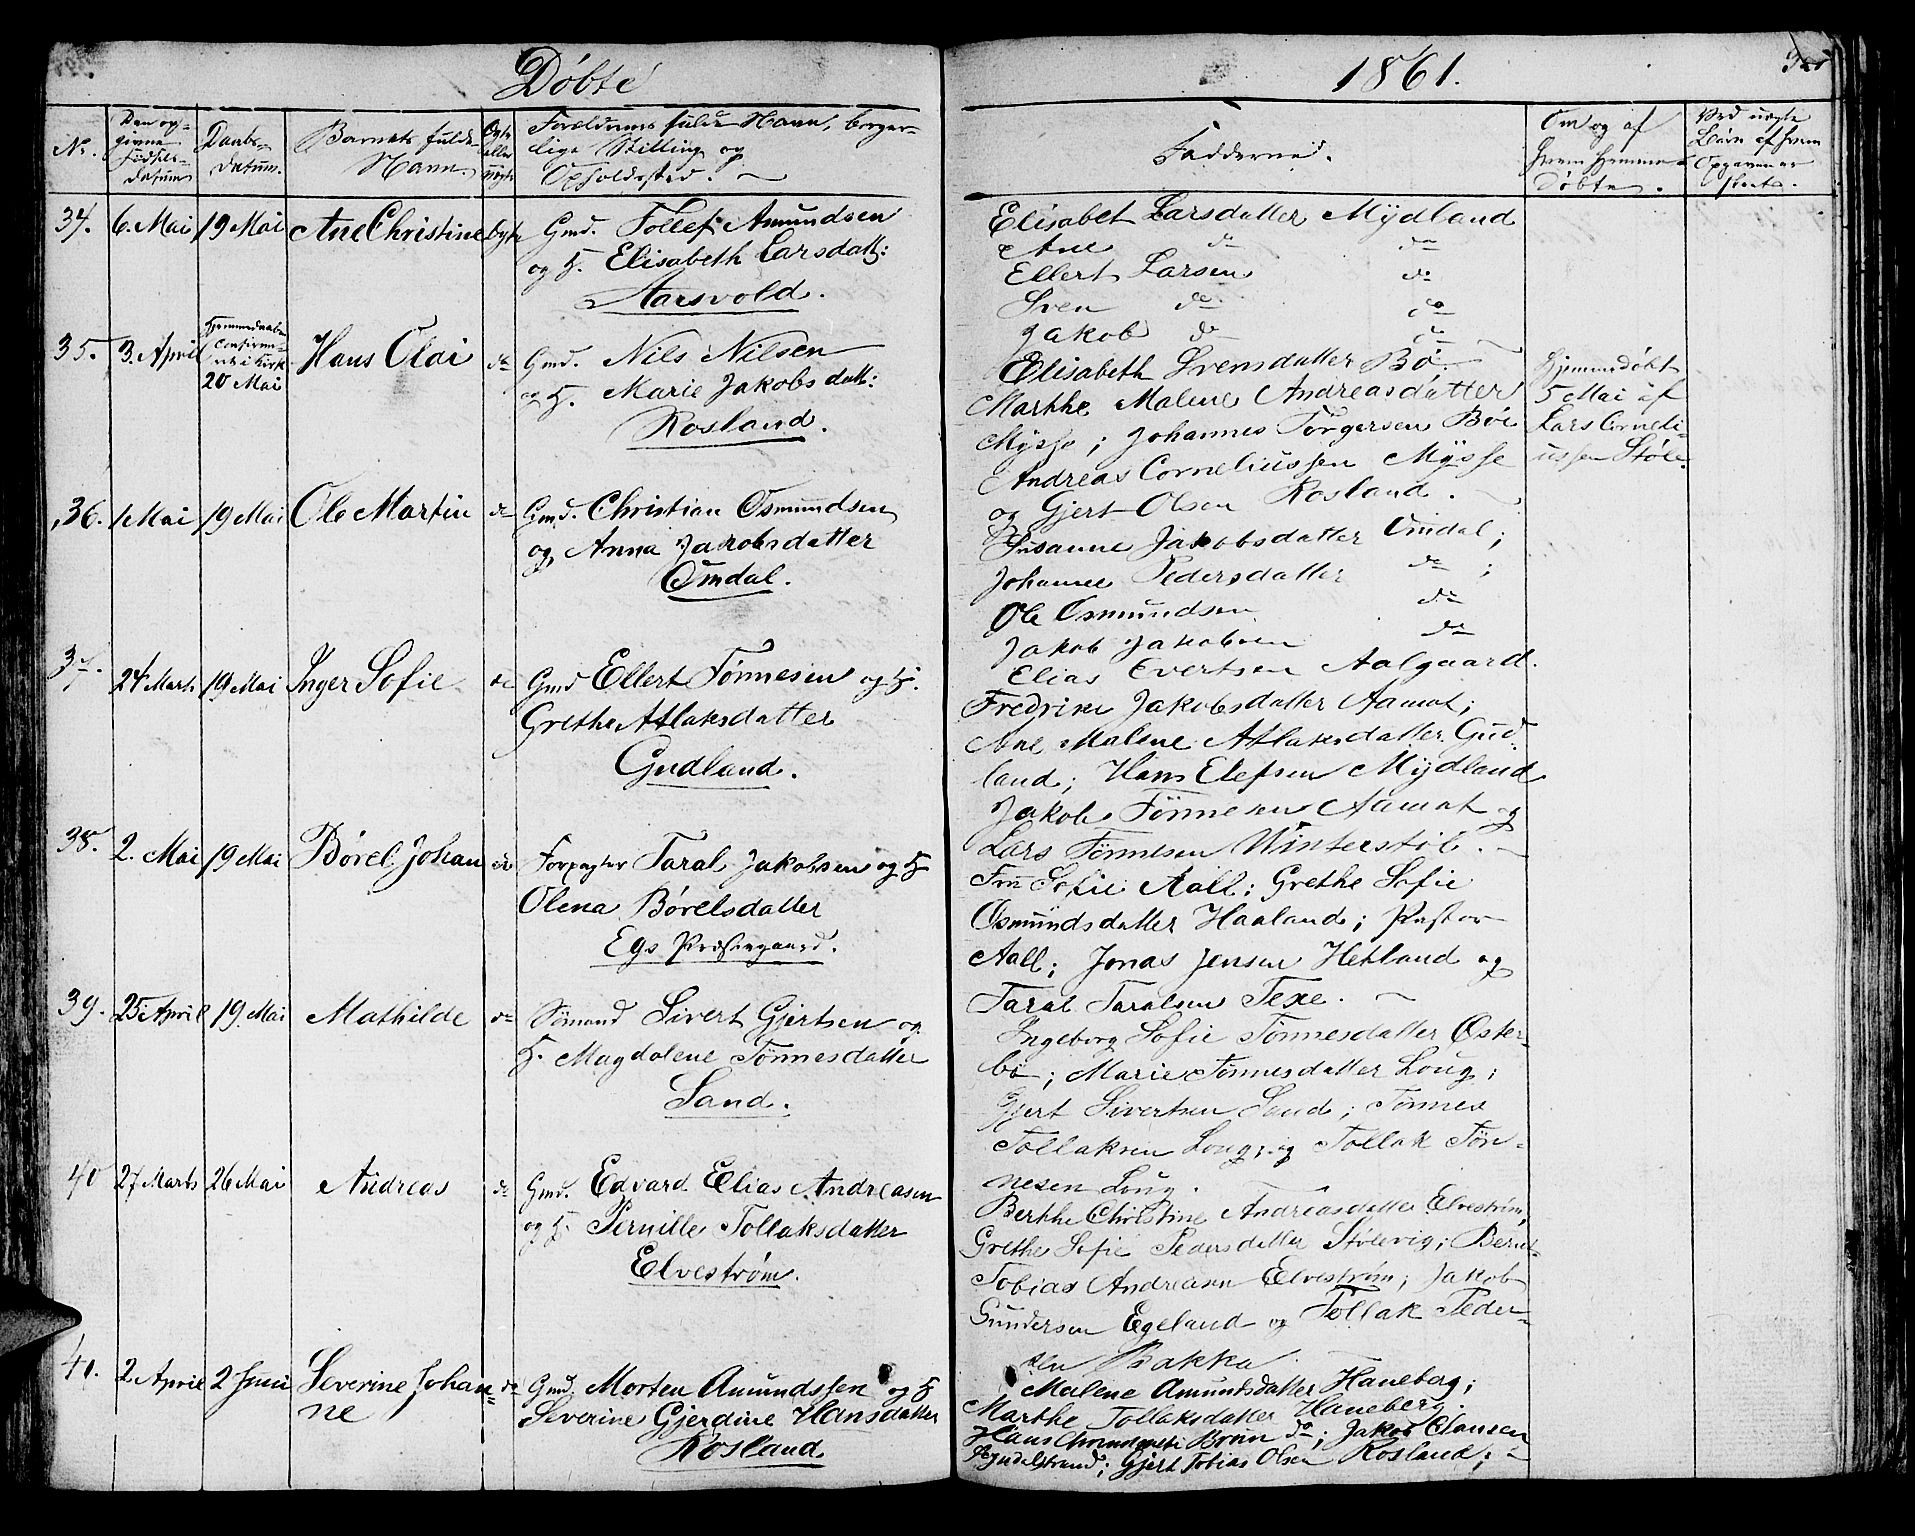 Døbte
1861.
No.
Den op-
givne
Fødsels-
datum
Daabs-
datum.
Barnets fulde
Navn.
Ægte
eller
uægte
Forældrenes fulde Navn, borger-
lige Stilling og
Opholdssted.
Fadderne.
Om og af
hvem hjemme-
døbte.
Ved uægte
Børn af hvem
Opgaven er
34. 6. Mai 19 Mai Ane Christine Gmd. Tollef Amundsen
og H. Elisabeth Larsdatt:
Aarsvold.
Elisabet Larsdatter Mydland
Ane do do
Ellert Larsen do
Sven do do
Jakob do do
35. 3. April Hjemmedaaben
confirme-
ret i Kirk
20 Mai Hans Olai do Gmd. Nils Nilsen
og H. Marie Jakobsdatt:
Rosland.
Elisabeth Svensdatter Bø.
Marthe Malene Andreasdatter
Mysse; Johannes Torgersen Bøe
Andreas Corneliussen Mysse
og Gjert Olsen Rosland.
Hjemmedøbt
5 Mai af
Lars Corneli-
ussen Støle.
36. 1 Mai 19 Mai Ole Martin do Gmd. Christian Osmundsen
og Anna Jakobsdatter
Omdal.
Susanne Jakobsdatter Omdal;
Johanne Pedersdatter do;
Ole Osmundsen do
Jakob Jakobsen do
Elias Evertsen Aalgaard.
37. 24 Marts 19 Mai Inger Sofie do Gmd Ellert Tønnesen og H.
Grethe Atlaksdatter
Gudland.
Fredrike Jakobsdatter Aamot;
Ane Malene Atlaksdatter Gud-
land; Hans Elefsen Mydland
Jakob Tønnesen Aamot og
Lars Tønnesen Winterstøl.
38. 2. Mai 19 Mai Børel Johan do Forpagter Taral Jakobsen og H
Olena Børelsdatter
Egs Præstegaard.
Fru Sofie Aall; Grethe Sofie
Osmundsdatter Haaland; Pastor
Aall; Jonas Jensen Hetland og
Taral Taralsen Texe.
39. 25 April 19. Mai Mathilde do Sømand Sivert Gjertsen og
H. Magdalene Tønnesdatter
Sand.
Ingeborg Sofie Tønnesdatter Øster-
bø; Marie Tønnesdatter Loug;
Gjert Sivertsen Sand; Tønnes
Tollaksen Loug; og Tollak Tøn-
nesen Loug.
40 27 Marts 26 Mai Andreas do Gmd. Edvard Elias Andreasen
og H. Pernille Tollaksdatter
Elvestrøm.
Berthe Christine Andreasdatter Elvestrøm,
Grethe Sofie Pedersdatter Stølevig; Bernt
Tobias Andreasen Elvestrøm; Jakob
Gundersen Egeland og Tollak Peder-
sen Bakka.
41. 2 April 2 Juni Severine Johan-
ne do Gmd. Morten Amundssen og H
Severine Gjerdine Hansdatter
Rosland.
Malene Amundsdatter Haneberg;
Marthe Tollaksdatter Haneberg.
Hans Bruun do; Jakob Clausen
Gjert Tobias Olsen Rosland;